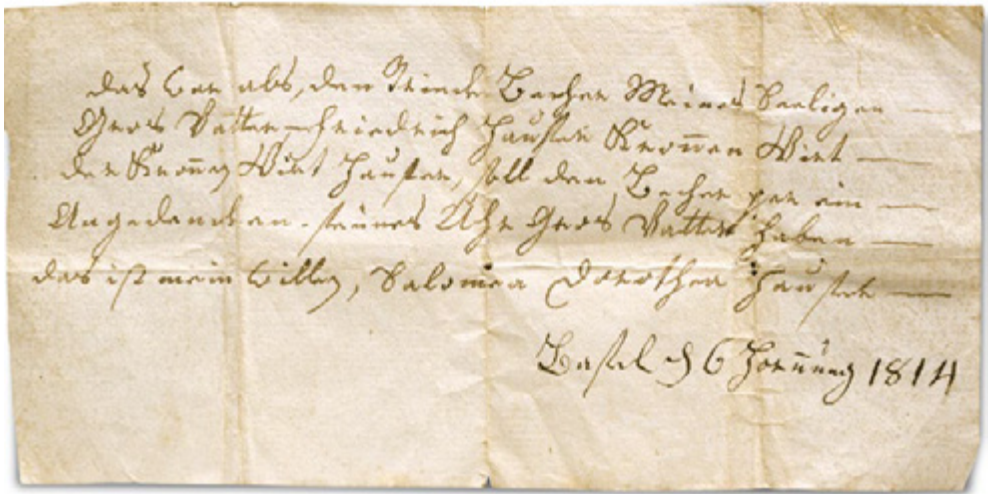 das war abs, der Trinck Becher Meines Seeligen
Gros Vatter Friedrich Huster Kronnen Wirt
der Kronnen Wirt Huster, soll den Becher per ein
Angedencken seines Uhr Gros Vatter haben
das ist mein willen, Salomea Dorothea Huster
Basel d 6 Hornung 1814